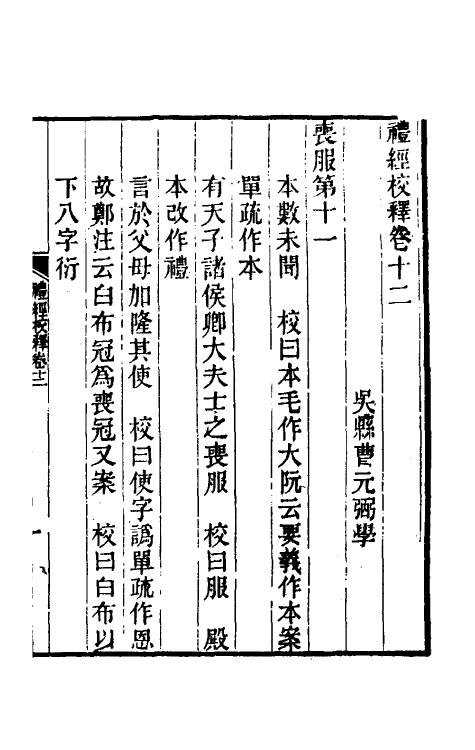 禮經校釋卷十二
吳縣曹元弼學
喪服第十一
本數未聞　校曰本毛作大阮云要義作本案
單疏作本
有天子諸侯卿大夫士之喪服　校曰服　殿
本改作禮
言於父母加隆其使　校曰使字譌單疏作恩
故鄭注云白布冠為喪冠又案　校曰白布以
下八字衍
禮經校釋卷十二
一